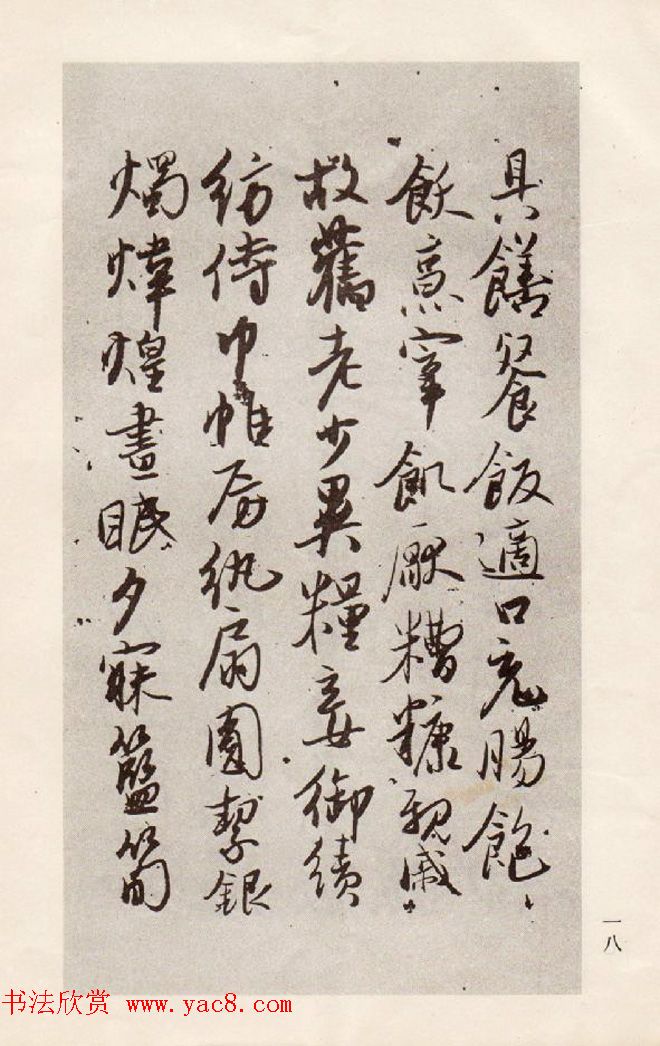 具饍餐飯適口充腸飽
飫烹宰飢厭糟糠親戚
故舊老少異糧妾御績
紡侍巾帷房紈扇圓絜銀
燭煒煌晝眠夕寐籃筍
一八
书法欣赏 www.yac8.com